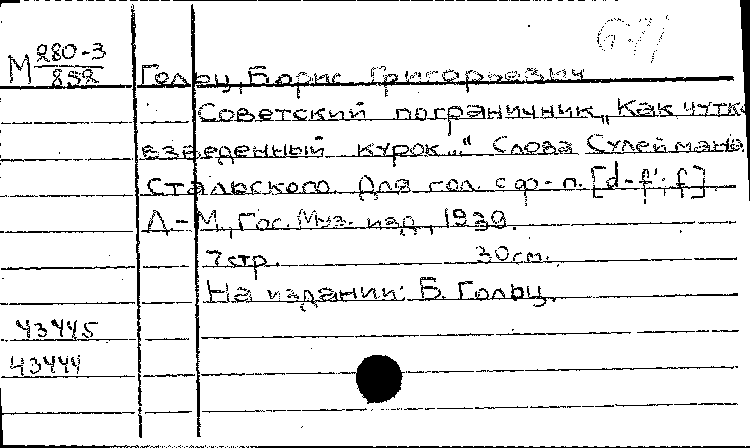 М 280-3
858
Гольц, Борис Григорьевич
Советский пограничник „Как чутко
взведенный курок..." Слова Сулеймана
Стальского. Для гол. с ф-п. [d-f'; f]
Л-М, Гос. Муз. изд, 1939.
7стр. 30см.
На издании: Б. Гольц.
43445
43444